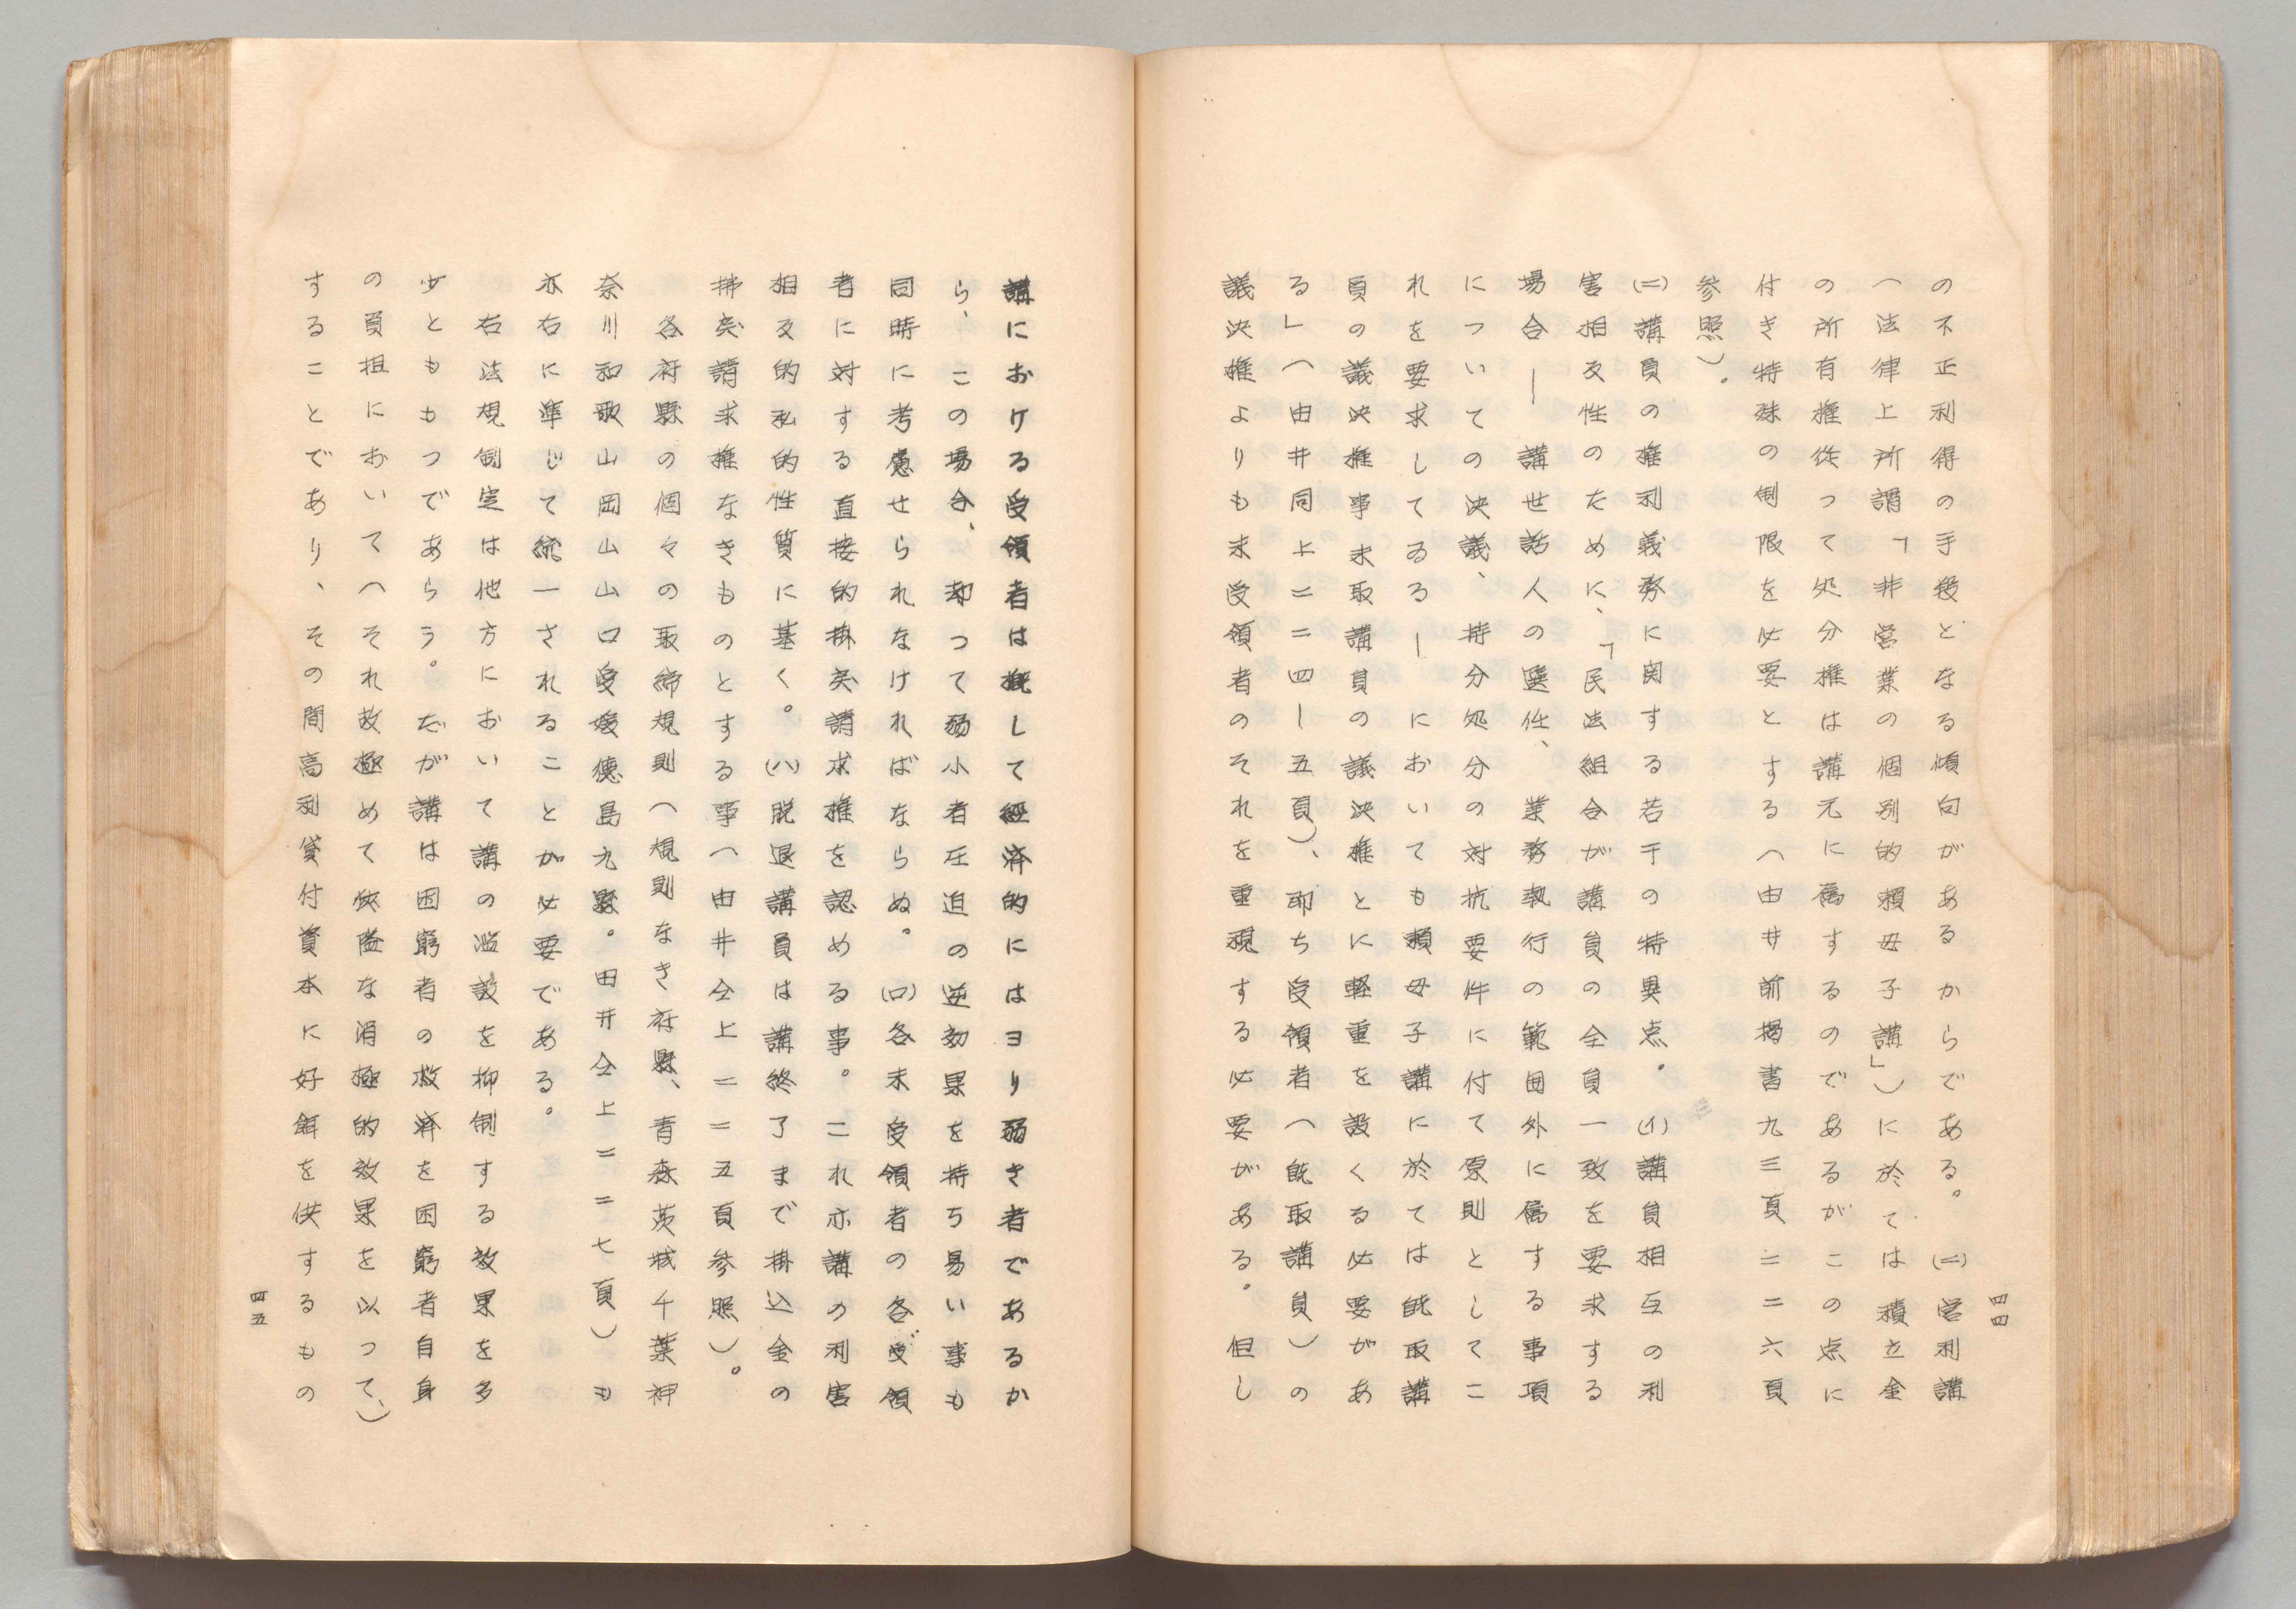 四四
の不正利得の手段となる傾向があるからである。(二)営利講
(法律上所謂「非営業の個別的頼母子講」)に於ては積立金
の所有権従って処分権は講元に属するのであるがこの点に
付き特殊の制限を必要とする(由井前掲書九三頁二二六頁
参照)。
(二)講員の権利義務に関する若干の特異点。(イ)講員相互の利
害相反性のために、「民法組合が講員の全員一致を要求する
場合― 講世話人の選任、業務執行の範囲外に属する事項
についての決議、持分処分の対抗要件に付て原則としてこ
れを要求してゐる― においても頼母子講に於ては既取講
員の議決権事未取講員の議決権とに軽重を設くる必要があ
る」(由井同上二二四―五頁)、即ち受領者(既取講員)の
議決権よりも未受領者のそれを重視する必要がある。但し
講における受領者は概して経済的にはヨり弱き者であるか
ら、この場合、却つて弱小者圧迫の逆効果を持ち易い事も
同時に考慮せられなければならぬ。(ロ)各未受領者の各受領
者に対する直接的掛戻請求権を認める事。これ亦講の利害
相反的私的性質に基く。(ハ)脱退講員は講終了まで掛込金の
掛戻請求権なきものとする事(由井仝上二二五頁参照)。
各府縣の個々の取締規則(規則なき府縣、青森茨城千葉神
奈川和歌山岡山山口愛媛徳島九縣。由井仝上二二七頁)も
亦右に準じて統一されることが必要である。
右法規制定は他方において講の濫設を抑制する効果を多
少とももつであらう。だが講は困窮者の救済を困窮者自身
の負担において(それ故極めて狭隘な消極的效果を以つて、)
することであり、その間高利貸付資本に好餌を供するもの
四五